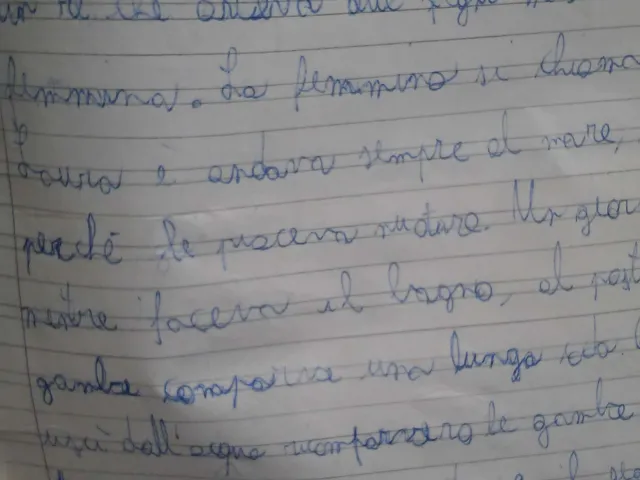 un re che aveva due figli
femmina. La femmina si chiama
Laura e andava sempre al mare,
perché le piaceva nuotare. Un gior
mentre faceva il bagno, al post
gambe comparve una lunga coda.
uscì dall'acqua ricomparvero le gambe